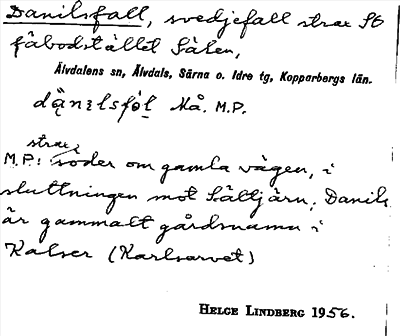 Danilsfall, svedjefall strax SO
fäbodstället Sälen,
Älvdalens sn, Älvdals, Särna o. Idre tg, Kopparbergs län.
Må. M.P.
strax
M.P.: söder om gamla vägen, i
sluttningen mot Sältjärn. Danils
är gammalt gårdsnamn i
Kalser (Karlsarvet)
HELGE LINDBERG 1956.